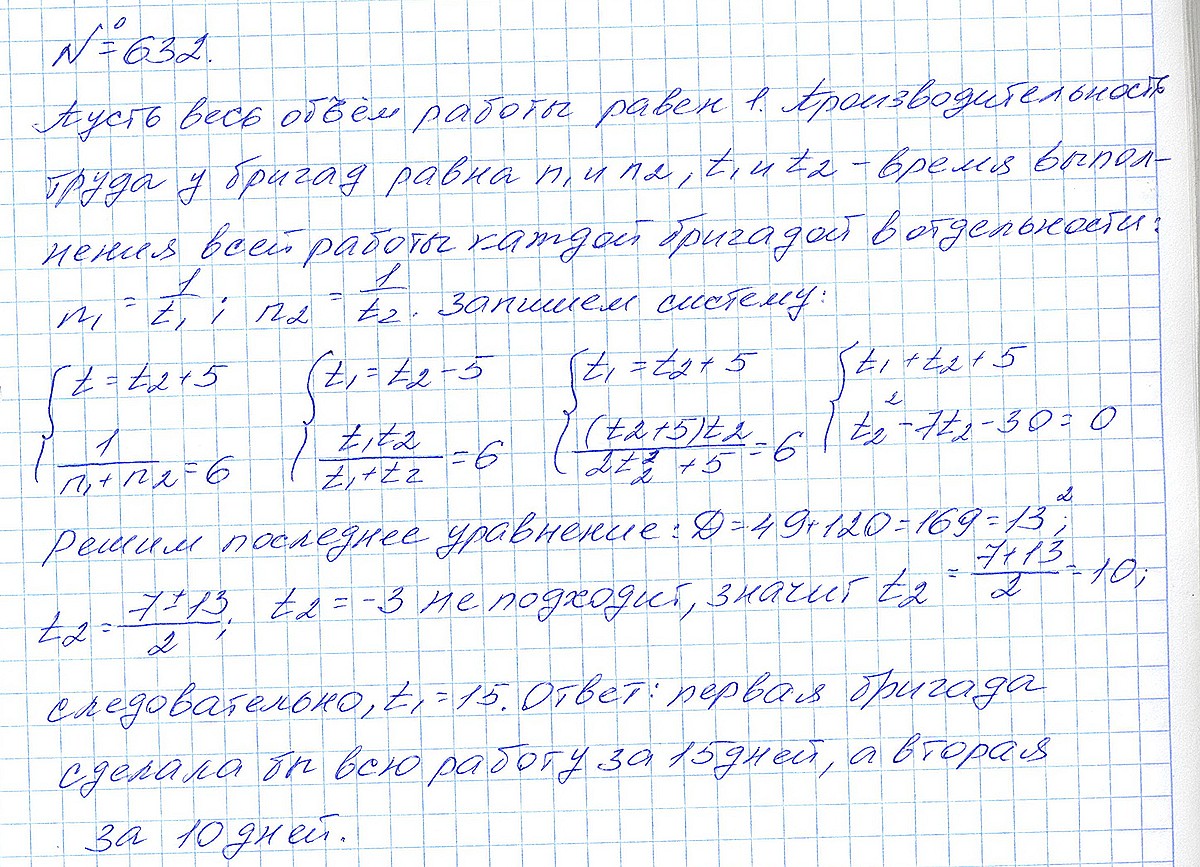 № 632.
Пусть весь объём работы равен 1. Производительность
труда у бригад равна n₁ и n₂, t₁ и t₂ – время выпол-
нения всей работы каждой бригадой в отдельности:
n₁ = 1/t₁; n₂ = 1/t₂. Запишем систему:
{t = t₂+5 {t₁ = t₂-5 {t₁ = t₂+5 {t₁+t₂+5
1/(n₁+n₂) = 6 t₁t₂/(t₁+t₂) = 6 (t₂+5)t₂/(2t₂²+5) = 6 t₂²-7t₂-30=0
Решим последнее уравнение: D=49+120=169=13²;
t₂ = (7±13)/2; t₂ = -3 не подходит, значит t₂ = (7+13)/2 = 10;
следовательно, t₁=15. Ответ: первая бригада
сделала бы всю работу за 15 дней, а вторая
за 10 дней.